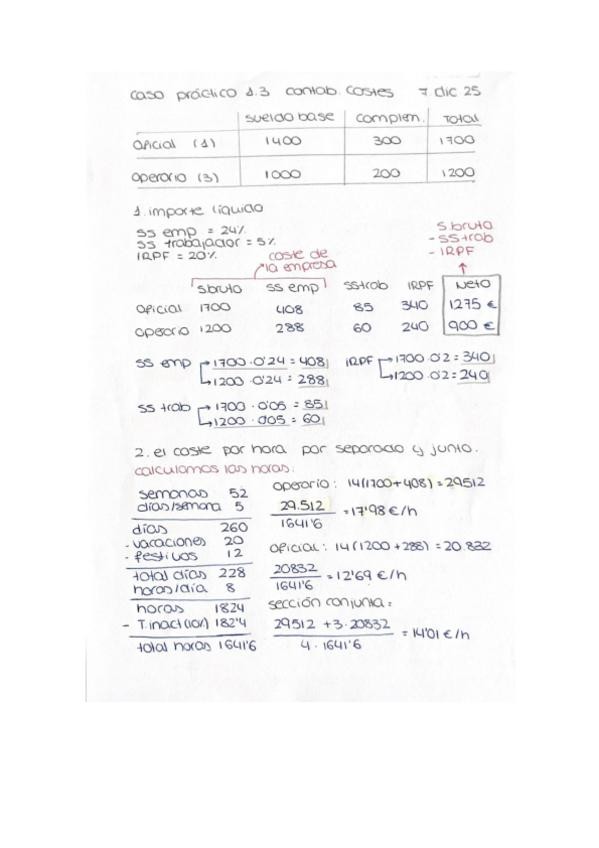 caso práctico 1.3 contab. costes 7 dic 25
sueldo base complem. Total
Oficial (1) 1400 300 1700
Operario (3) 1000 200 1200
1. importe líquido
SS emp = 24%
SS trabajador = 5%
IRPF = 20%
S.bruto
- SStrab
- IRPF
coste de
la empresa
S.bruto SS emp SStrab IRPF Neto
Oficial 1700 408 85 340 1275 €
Operario 1200 288 60 240 900 €
SS emp 1700 · 0'24 = 408
1200 · 0'24 = 288
IRPF 1700 · 0'2 = 340
1200 · 0'2 = 240
SS trab 1700 · 0'05 = 85
1200 · 005 = 60
2. el coste por hora por separado y junto.
calculamos las horas:
semanas 52
días/semana 5
días 260
- vacaciones 20
- festivos 12
total días 228
horas/día 8
horas 1824
- T.inact (10%) 182'4
total horas 1641'6
operario: 14(1700+408) = 29512
29.512
1641'6
= 17'98 €/h
Oficial: 14(1200+288) = 20.832
20832
1641'6
= 12'69 €/h
sección conjunta:
29512 + 3 · 20832
4 · 1641'6
= 14'01 €/h